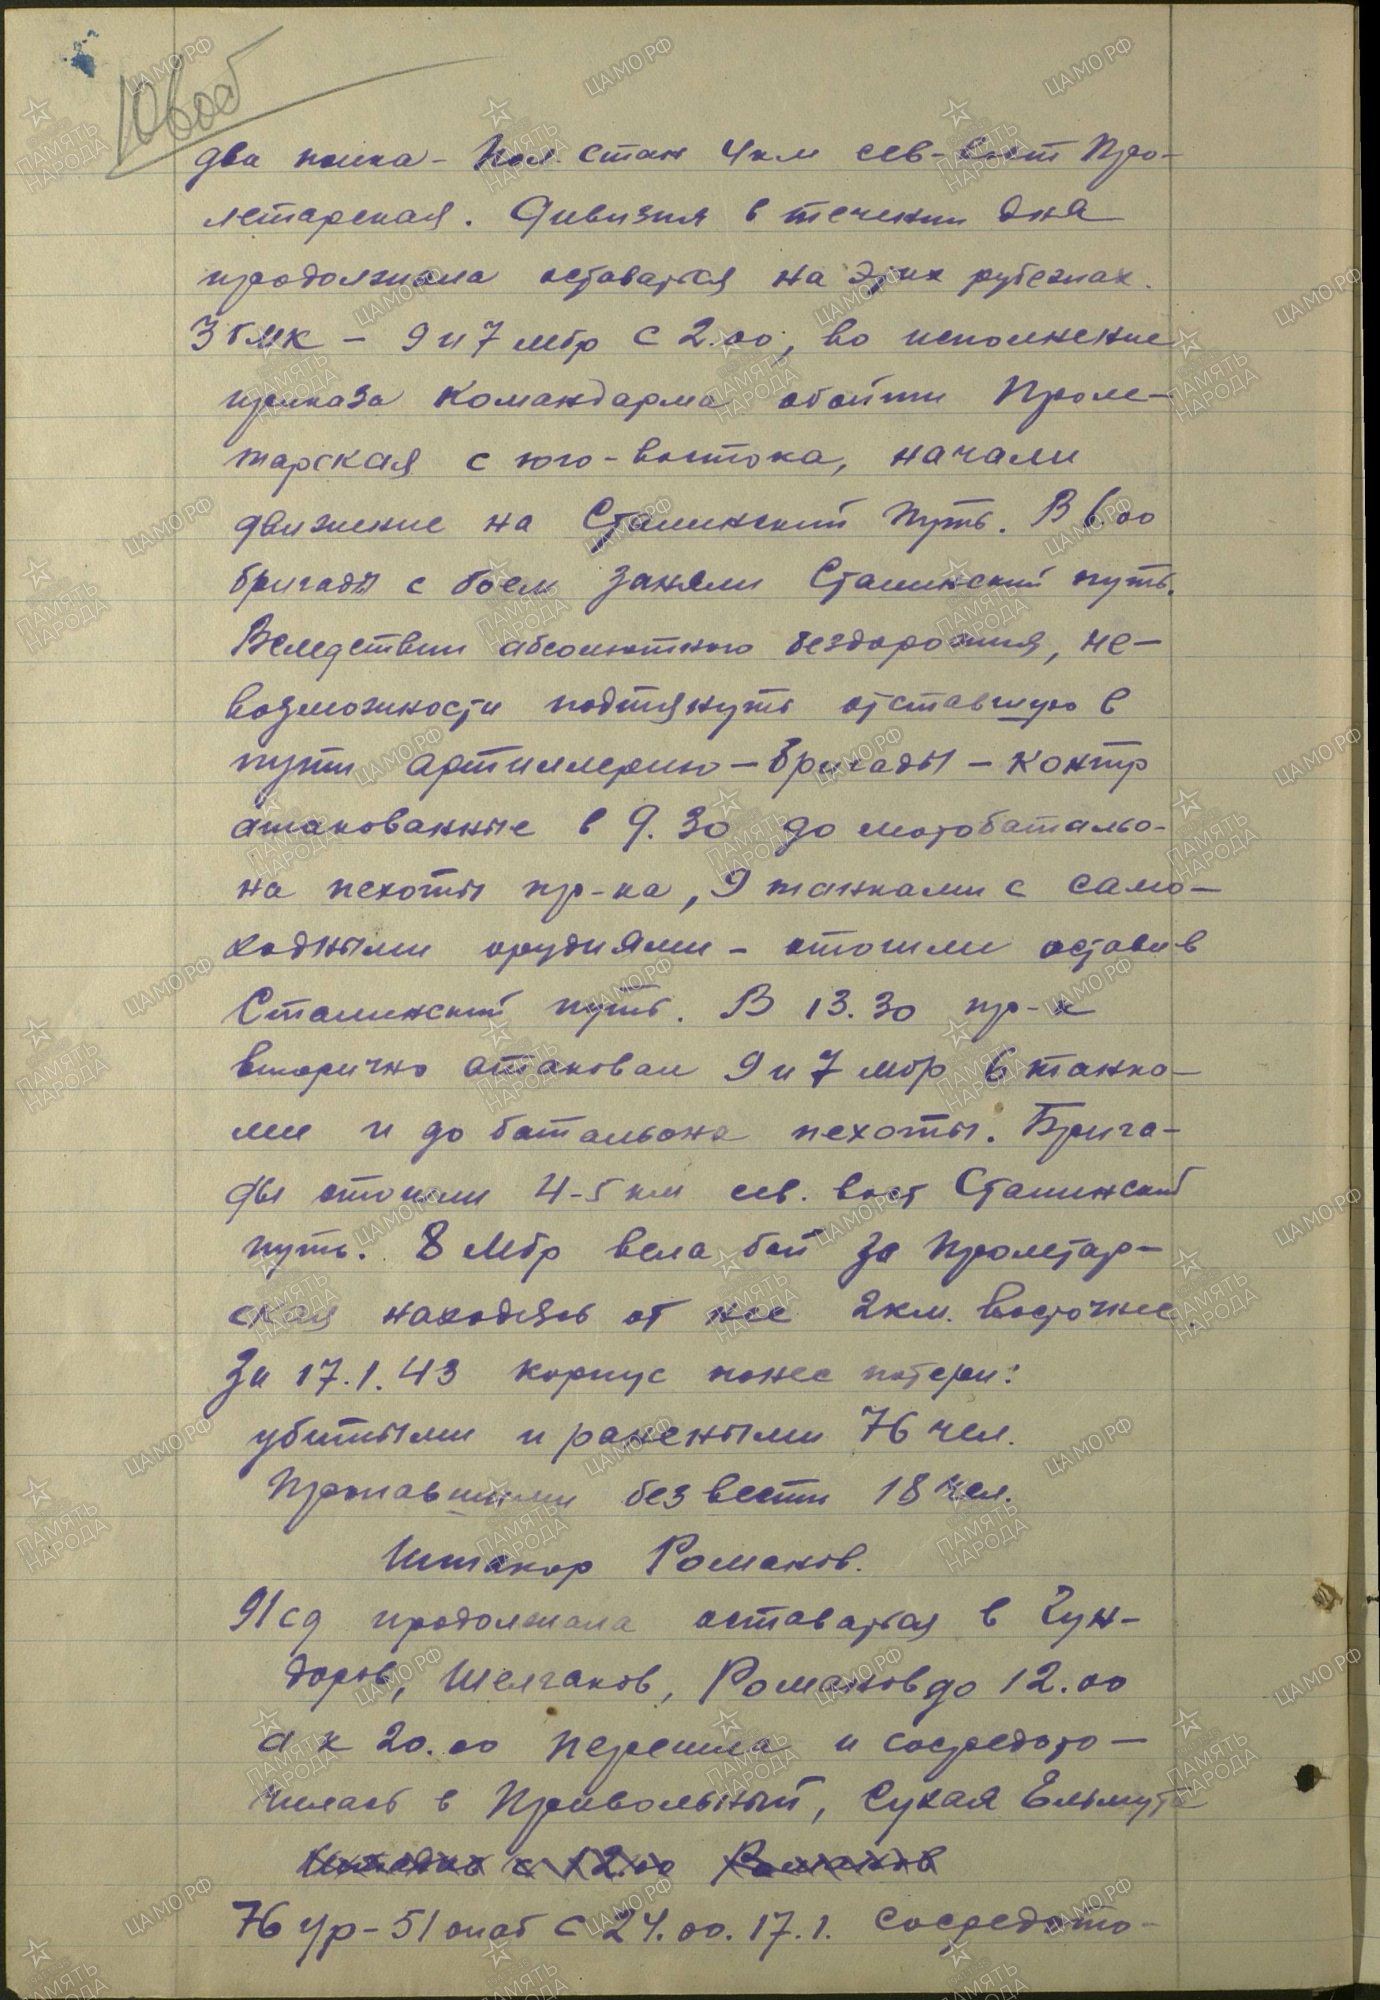 10 воб
два полка - Пол. Стан 4 км сев-вост Про-
летарская. Дивизия в течении дня
продолжала оставаться на этих рубежах.
3 гмк - 9 и 7 мбр с 2.00, во исполнение
приказа Командарма обойти Проле-
тарская с юго-востока, начали
движение на Сталинский Путь. В 6.00
бригады с боем заняли Сталинский путь.
Вследствии абсолютного бездорожия, не-
возможности подтянуть отставшую в
пути артиллерию - Бригады - контр
атакованные в 9.30 до мотобатальо-
на пехоты пр-ка, 9 танками с само-
ходными орудиями - отошли оставив
Сталинский путь. В 13.30 пр-к
вторично атаковал 9 и 7 мбр 6 танка-
ми и до батальона пехоты. Брига-
ды отошли 4-5 км сев. вост Сталинский
путь. 8 Мбр вела бой за Пролетар-
ская находясь от нее 2 км. восточнее.
За 17.1.43 корпус понес потери:
убитыми и ранеными 76 чел.
Пропавшими без вести 18 чел.
Штакор Романов.
91 сд продолжала оставаться в Гун-
доров, Шелгаков, Романов до 12.00
а к 20.00 перешла и сосредото-
чилась в Привольный, Сухая Ельмута
Штадив с 12.00 Романов
76 ур - 51 опаб с 24.00. 17.1. сосредото-